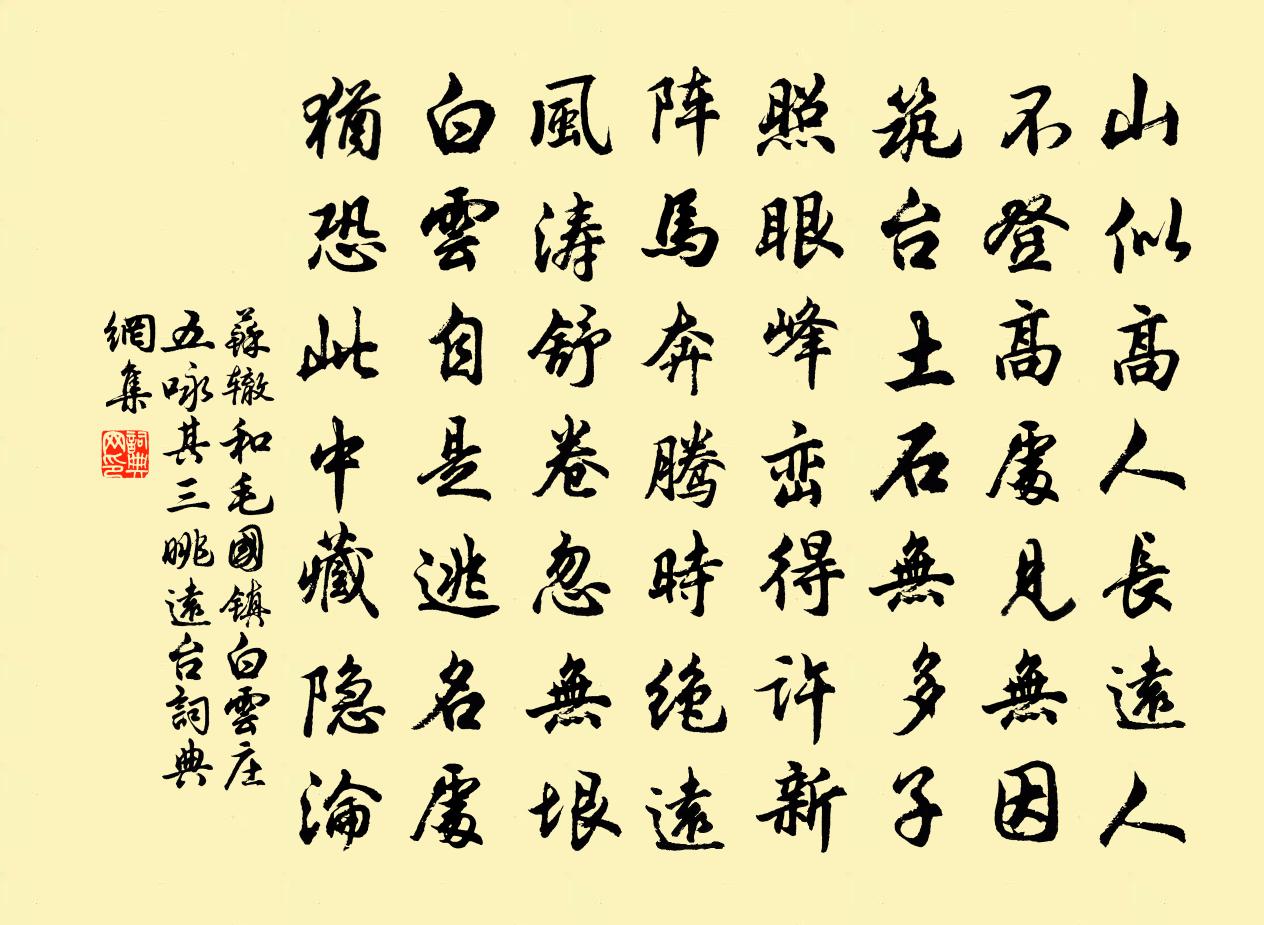 山似高人長遠人
不登高處見無因
筑台土石無多子
照眼峰峦得许新
阵馬奔騰時绝遠
風涛舒卷忽無垠
白雲自是逃名處
猶恐此中藏隐淪
蘇辙和毛國镇白雲庄
五咏其三眺遠台詞典
網集
詞典
网印